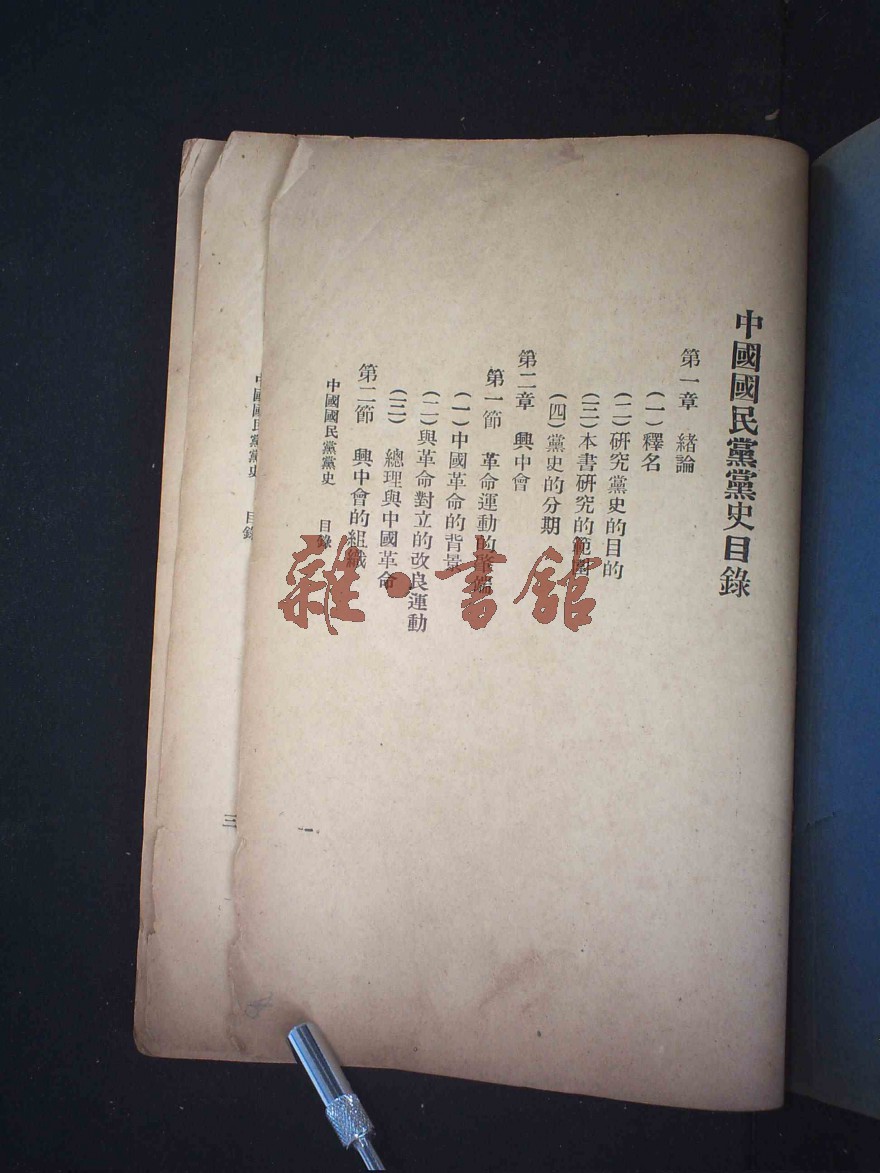 中國國民黨黨史目錄
第一章　緒論
(一)釋名
(二)研究黨史的目的
(三)本書研究的範圍
(四)黨史的分期
第二章　興中會
第一節　革命運動的肇端
(一)中國革命的背景
(二)與革命對立的改良運動
(三)　總理與中國革命
第二節　興中會的組織
中國國民黨黨史　目錄
一
中國國民黨黨史　目錄
三
雜·書館